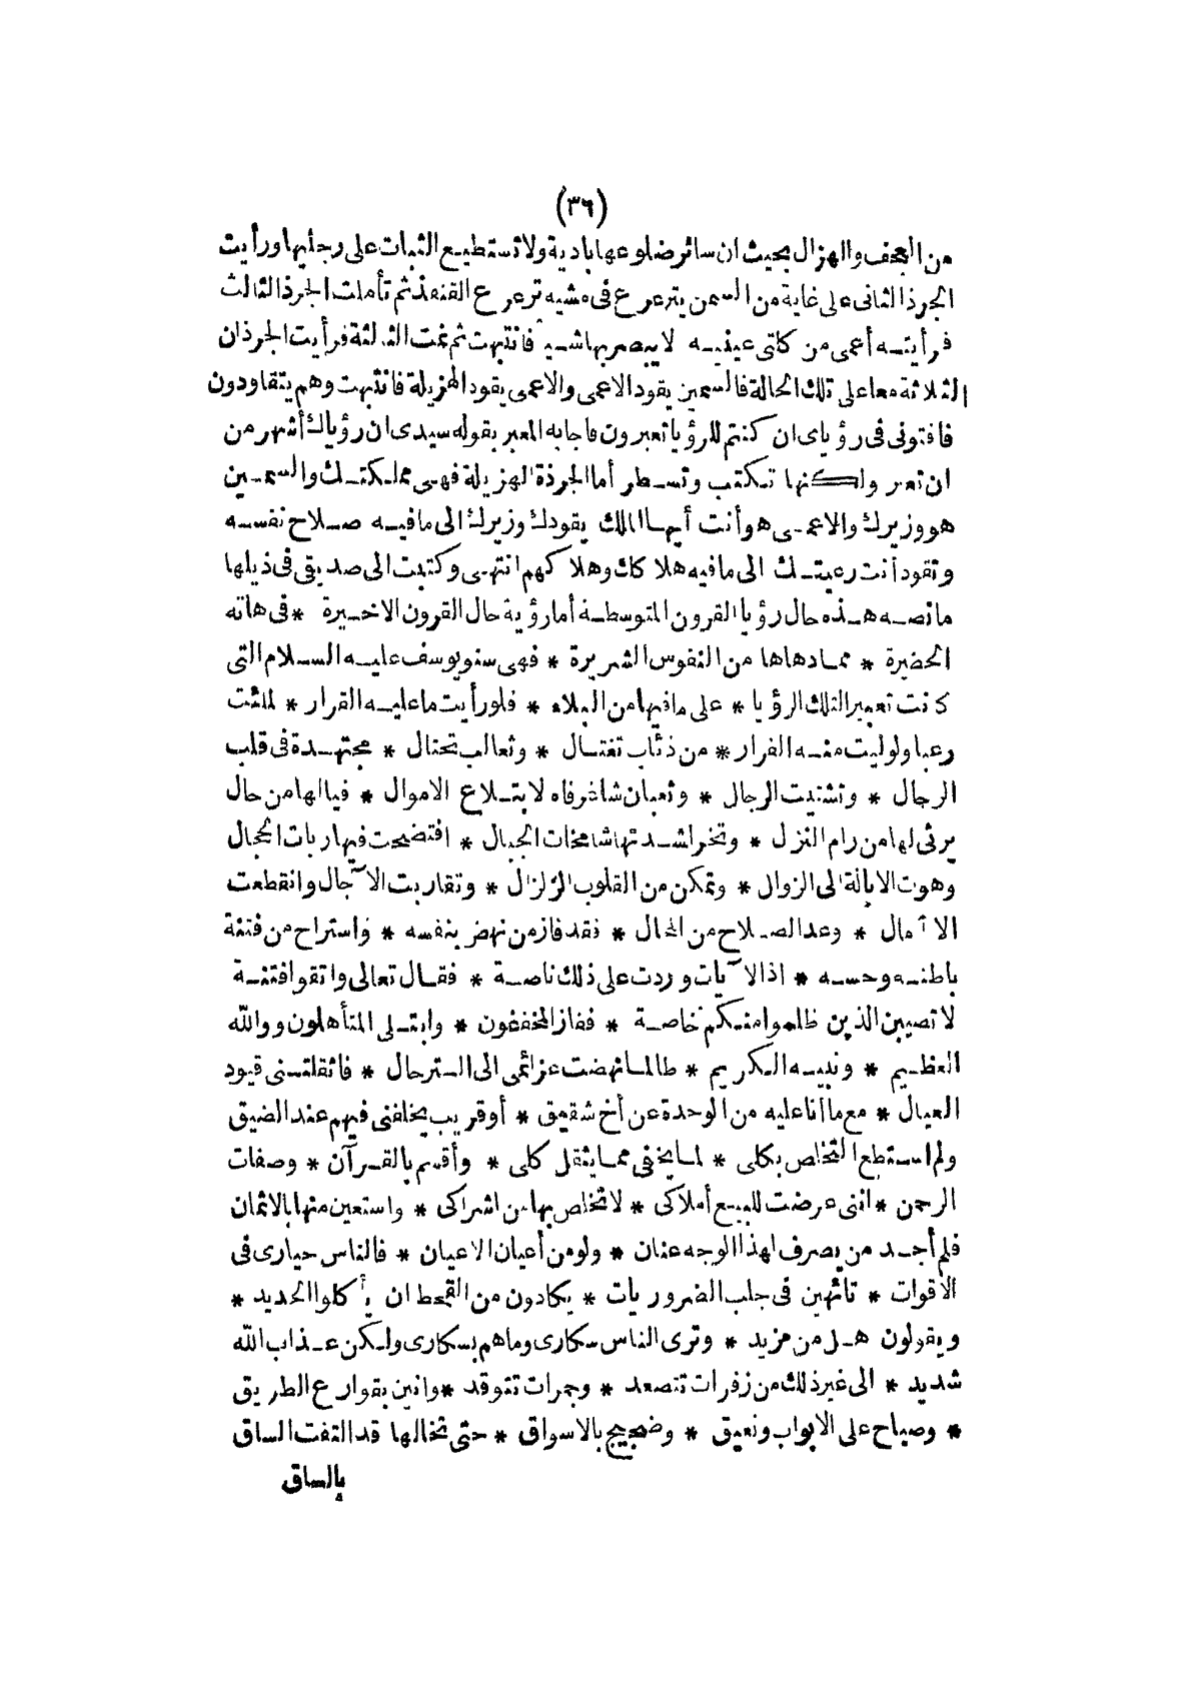 (٣٦)
من العجف والهزال بحيث ان سائر ضلوعها بادية ولا تستطيع الثبات على رجليها ورأيت
الجرذ الثانى على غاية من السمن يترعرع فى مشيه ترعرع القنفذ ثم تأملت الجرذ الثالث
فرأيته أعمى من كلتى عينيه لا يبصر بها شىء فانتبهت ثم نمت الثالثة فرأيت الجرذان
الثلاثة معا على تلك الحالة فالسمين يقود الاعمى والاعمى يقود الهزيلة فانتبهت وهم يتقاودون
فافتونى فى رؤياى ان كنتم للرؤيا تعبرون فاجابه المعبر بقوله سيدى ان رؤياك أشهر من
ان تعبر ولكنها تكتب وتسطر أما الجرذة الهزيلة فهى مملكتك والسمين
هو وزيرك والاعمى هو أنت أيها الملك يقودك وزيرك الى ما فيه صلاح نفسه
وتقود أنت رعيتك الى ما فيه هلاكك وهلاكهم انتهى وكتبت الى صديقى فى ذيلها
ما نصه هذه حال رؤيا القرون المتوسطة أما رؤية حال القرون الاخيرة * فى هاته
الحضيرة * مما دهاها من النفوس الشريرة * فهى سنو يوسف عليه السلام التى
كانت تعبير التلك الرؤيا * على ما فيها من البلاء * فلو رأيت ما عليه القرار * لملئت
رعبا ولوليت منه الفرار * من ذئاب تغتال * وثعالب تحتال * مجتهدة فى قلب
الرجال * وتشتيت الرجال * وثعبان شاغر فاه لابتلاع الاموال * فيا لها من حال
يرثى لها من رام النزل * وتخر لشدتها شامخات الجبال * افتضحت فيها ربات الحجال
وهوت الايالة الى الزوال * وتمكن من القلوب الزلزال * وتقاربت الآجال وانقطعت
الآمال * وعد الصلاح من المحال * فقد فاز من نهض بنفسه * واستراح من فتنة
باطنه وحسه * اذ الآيات وردت على ذلك ناصة * فقال تعالى واتقوا فتنة
لا تصيبن الذين ظلموا منكم خاصة * ففاز المخففون * وابتلى المتأهلون ووالله
العظيم * ونبيه الكريم * طالما نهضت عزائمى الى الترحال * فاثقلتنى قيود
العيال * مع ما أنا عليه من الوحدة عن أخ شقيق * أو قريب يخلفنى فيهم عند الضيق
ولم استطع التخلص بكلى * لما يخفى مما يثقل كلى * وأقسم بالقرآن * وصفات
الرحمن * اننى عرضت للبيع أملاكى * لاتخلص بها من اشراكى * واستعين منها بالاثمان
فلم أجد من يصرف لهذا الوجه عنان * ولو من أعيان الاعيان * فالناس حيارى فى
الاقوات * تائهين فى جلب الضروريات * يكادون من القحط ان يأكلوا الحديد *
ويقولون هل من مزيد * وترى الناس سكارى وما هم بسكارى ولكن عذاب الله
شديد * الى غير ذلك من زفرات تتصعد * وجمرات تتوقد * وانين بقوارع الطريق
* وصياح على الابواب ونعيق * وضجيج بالاسواق * حتى تخالها قد التفت الساق
بالساق